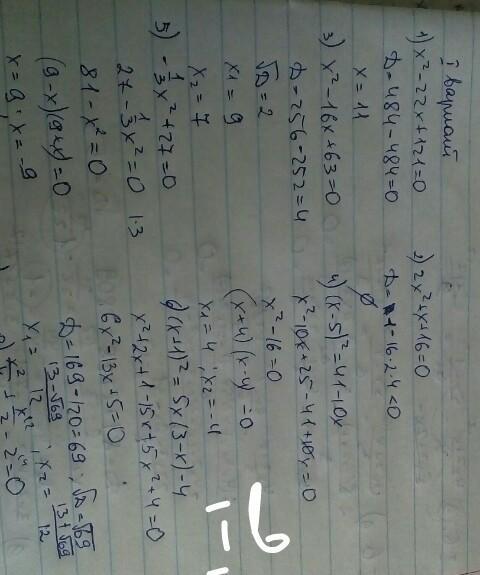 I вариант
1) x² - 22x + 121 = 0
D = 484 - 484 = 0
x = 11
3) x² - 16x + 63 = 0
D = 256 - 252 = 4
√D = 2
x₁ = 9
x₂ = 7
5) -1/3 x² + 27 = 0
27 - 1/3 x² = 0 |·3
81 - x² = 0
(9 - x)(9 + x) = 0
x = 9; x = -9
2) 2x² + x + 16 = 0
D = 1 - 16·2·4 < 0
∅
4) (x - 5)² = 41 - 10x
x² - 10x + 25 - 41 + 10x = 0
x² - 16 = 0
(x + 4)(x - 4) = 0
x₁ = 4; x₂ = -4
6) (x + 1)² = 5x(3 - x) - 4
x² + 2x + 1 - 15x + 5x² + 4 = 0
6x² - 13x + 5 = 0
D = 169 - 120 = 69; √D = √69
x₁ = 13 - √69 / 12; x₂ = 13 + √69 / 12